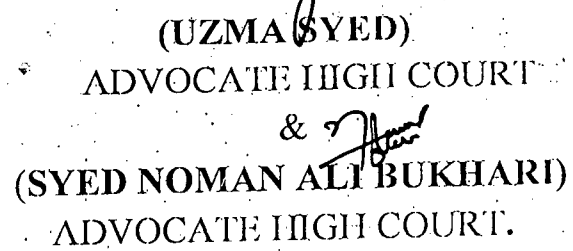 (UZMA SYED)
ADVOCATE HIGH COURT
&
(SYED NOMAN ALI BUKHARI)
ADVOCATE HIGH COURT.